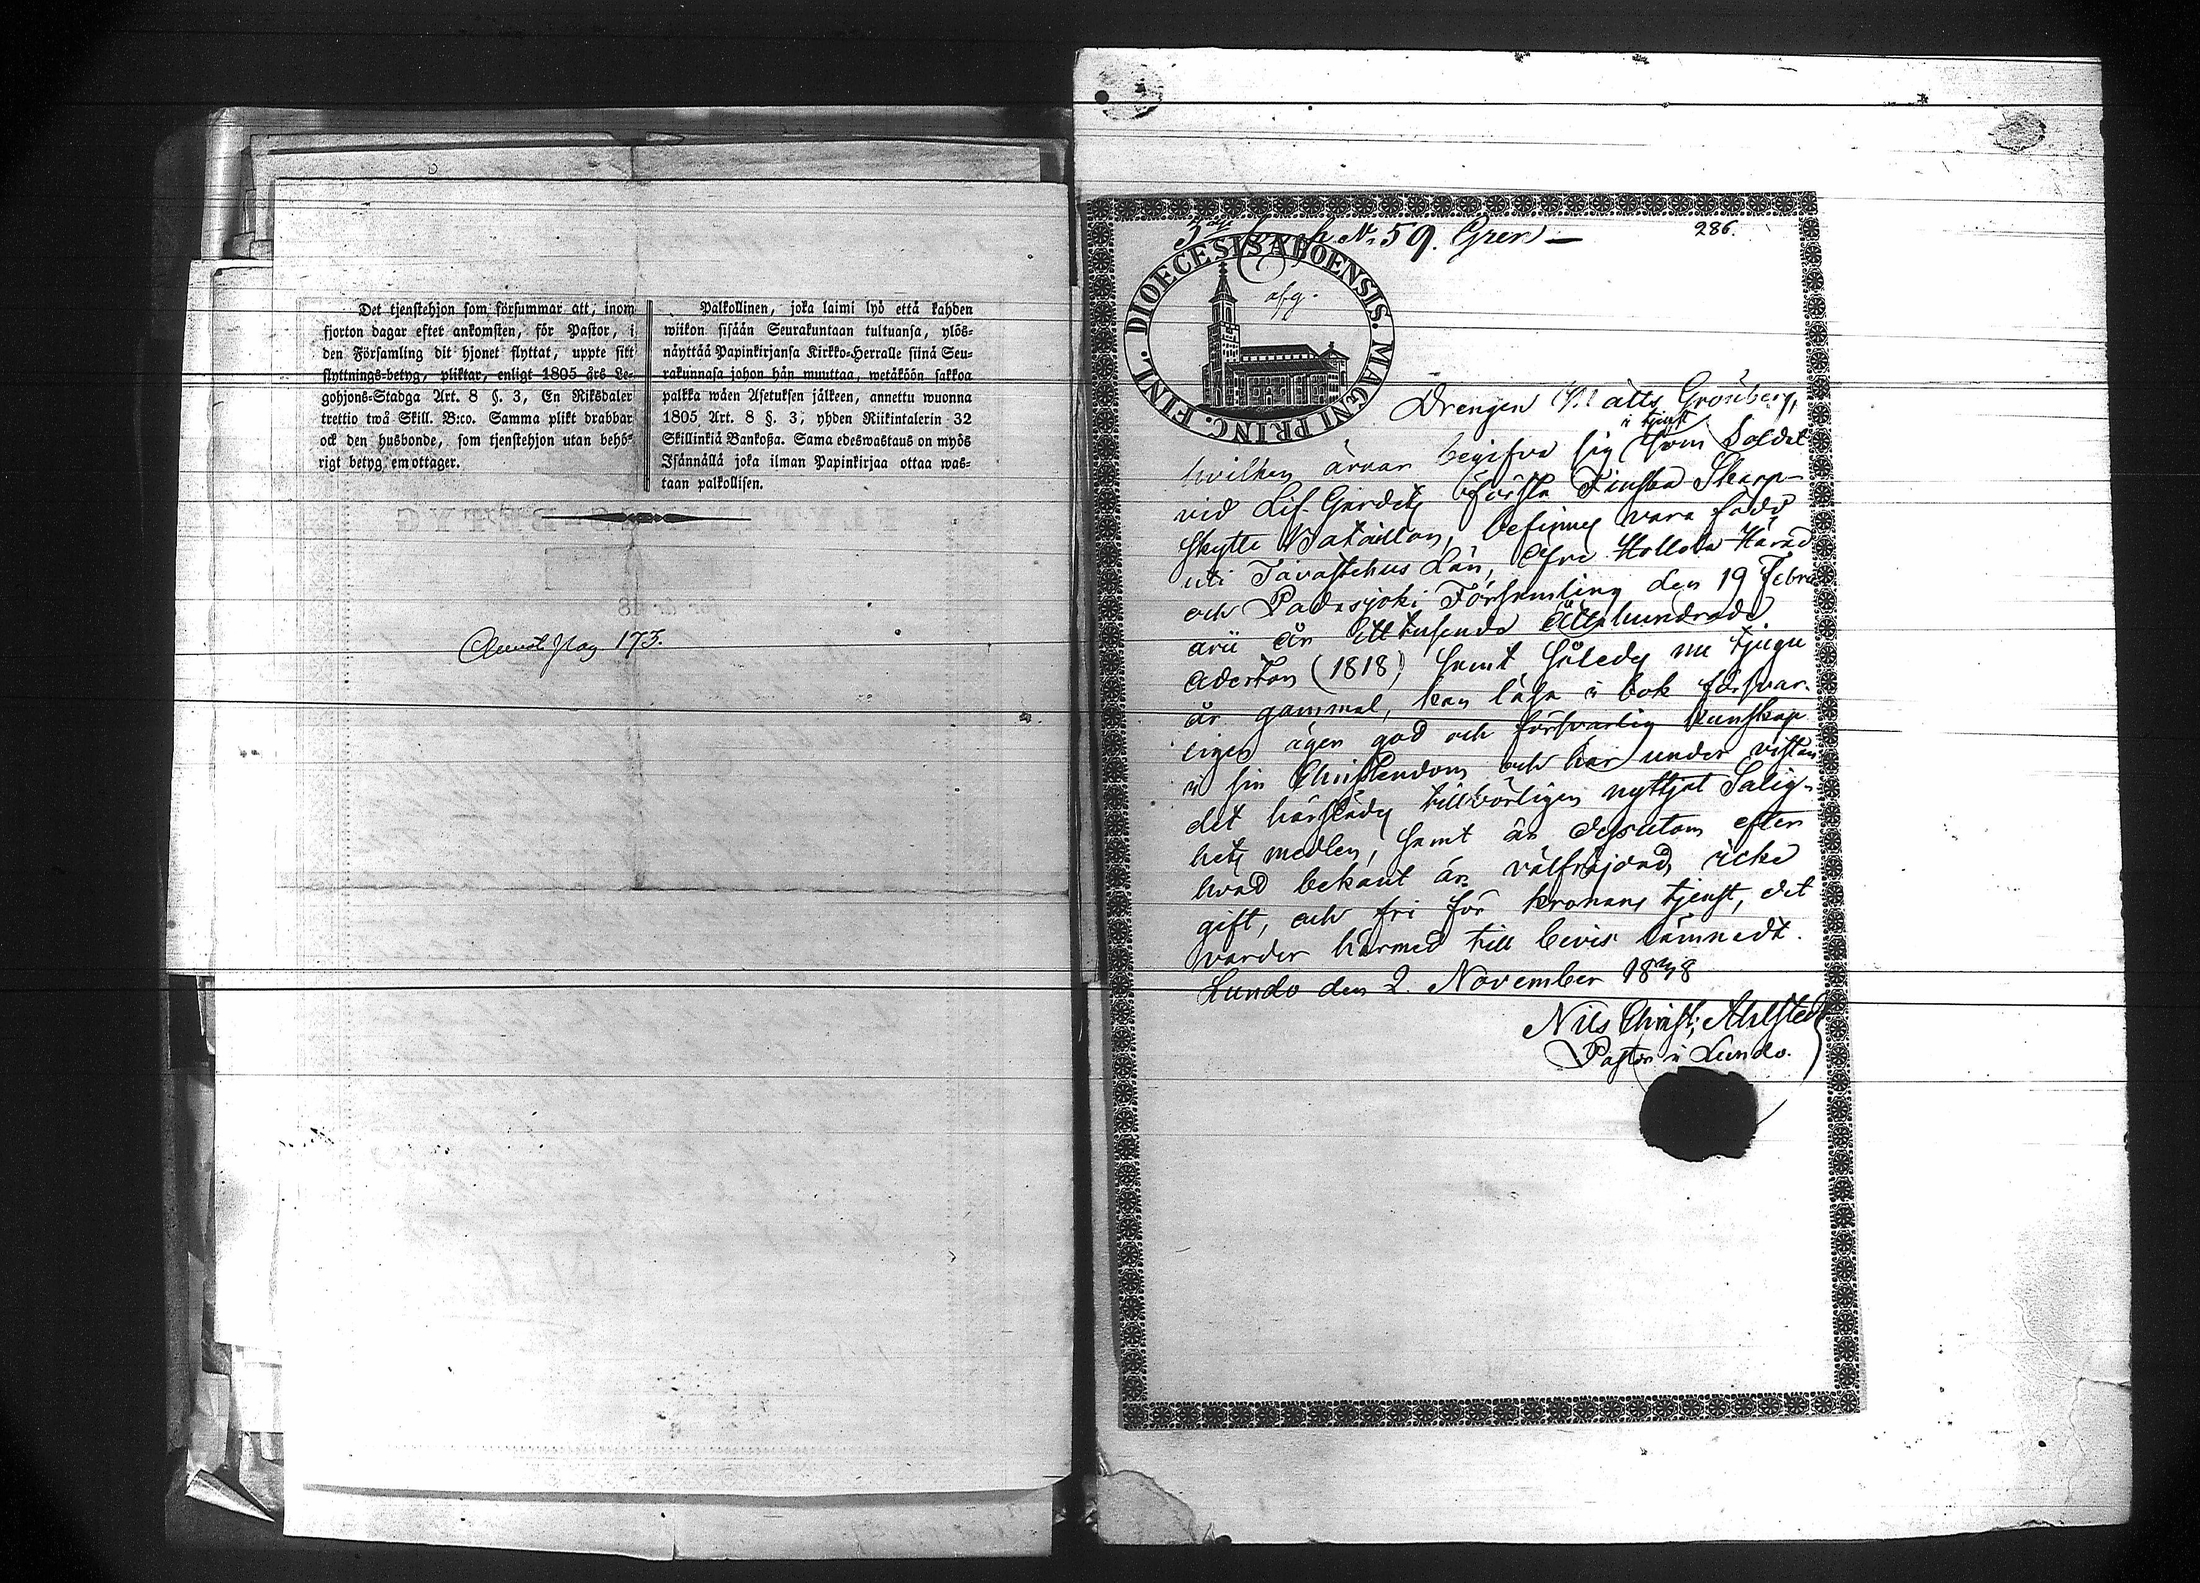 Det tjenstehjon som försummar att, inom
fjorton dagar eftet ankomsten, för Pastor, i
den Församling dit hjonet flyttat, uppte sitt
flyttnings-betyg, pliktar, enligt 1805 års Le-
gohjons-Stadga Art. 8 §. 3, En Riksdaler
trettio twå Skill. B:co. Samma plikt drabbar
ock den husbonde, som tjenstehjon utan behö-
rigt betyg emottager.
Palkollinen, joka laimi lyö että kahden
wiikon sisään Seurakuntaan tultuansa, ylös-
näyttää Papinkirjansa Kirkko-Herralle siinä Seu-
rakunnasa johon hän muuttaa, wetäköön sakkoa
palkka wäen Asetuksen jälkeen, annettu wuonna
1805 Art. 8 §. 3, yhden Riikintalerin 32
Skillinkiä Bankosa. Sama edeswastaus on myös
Isännällä joka ilman Papinkirjaa ottaa was-
taan palkollisen.
pag 173.
N: 59. Gren
286.
DIOECESIS ABOENSIS. MAGNI PRINC. FINL.
afg.
Drengen Matts Grönberg,
i tjenst
hvilken ärnar begifva sig som Soldat
vid Lif-Gardets första Finska Skarp-
skytte Bataillon, befinnes vara född
uti Tavastehus Län, öfre Hollola Härad
och Padasjoki Församling den 19 Febru
arii år Ett tusende Åttahundrade
aderton (1818) samt således nu tjugu
år gammal, kan läsa i bok försvar-
ligen äger god och försvarlig kunskap
i sin Christendom och har under vistan
det härstädes tillbörligen nyttjat Salig-
hets medlen, samt är dessutom efter
hvad bekant är välfrejdad, icke
gift, och fri för kronans tjenst, det
varder härmed till bevis lämnadt.
Lundo den 2. November 1838
Nils Christ; Ahlstedt
Pastor i Lundo.